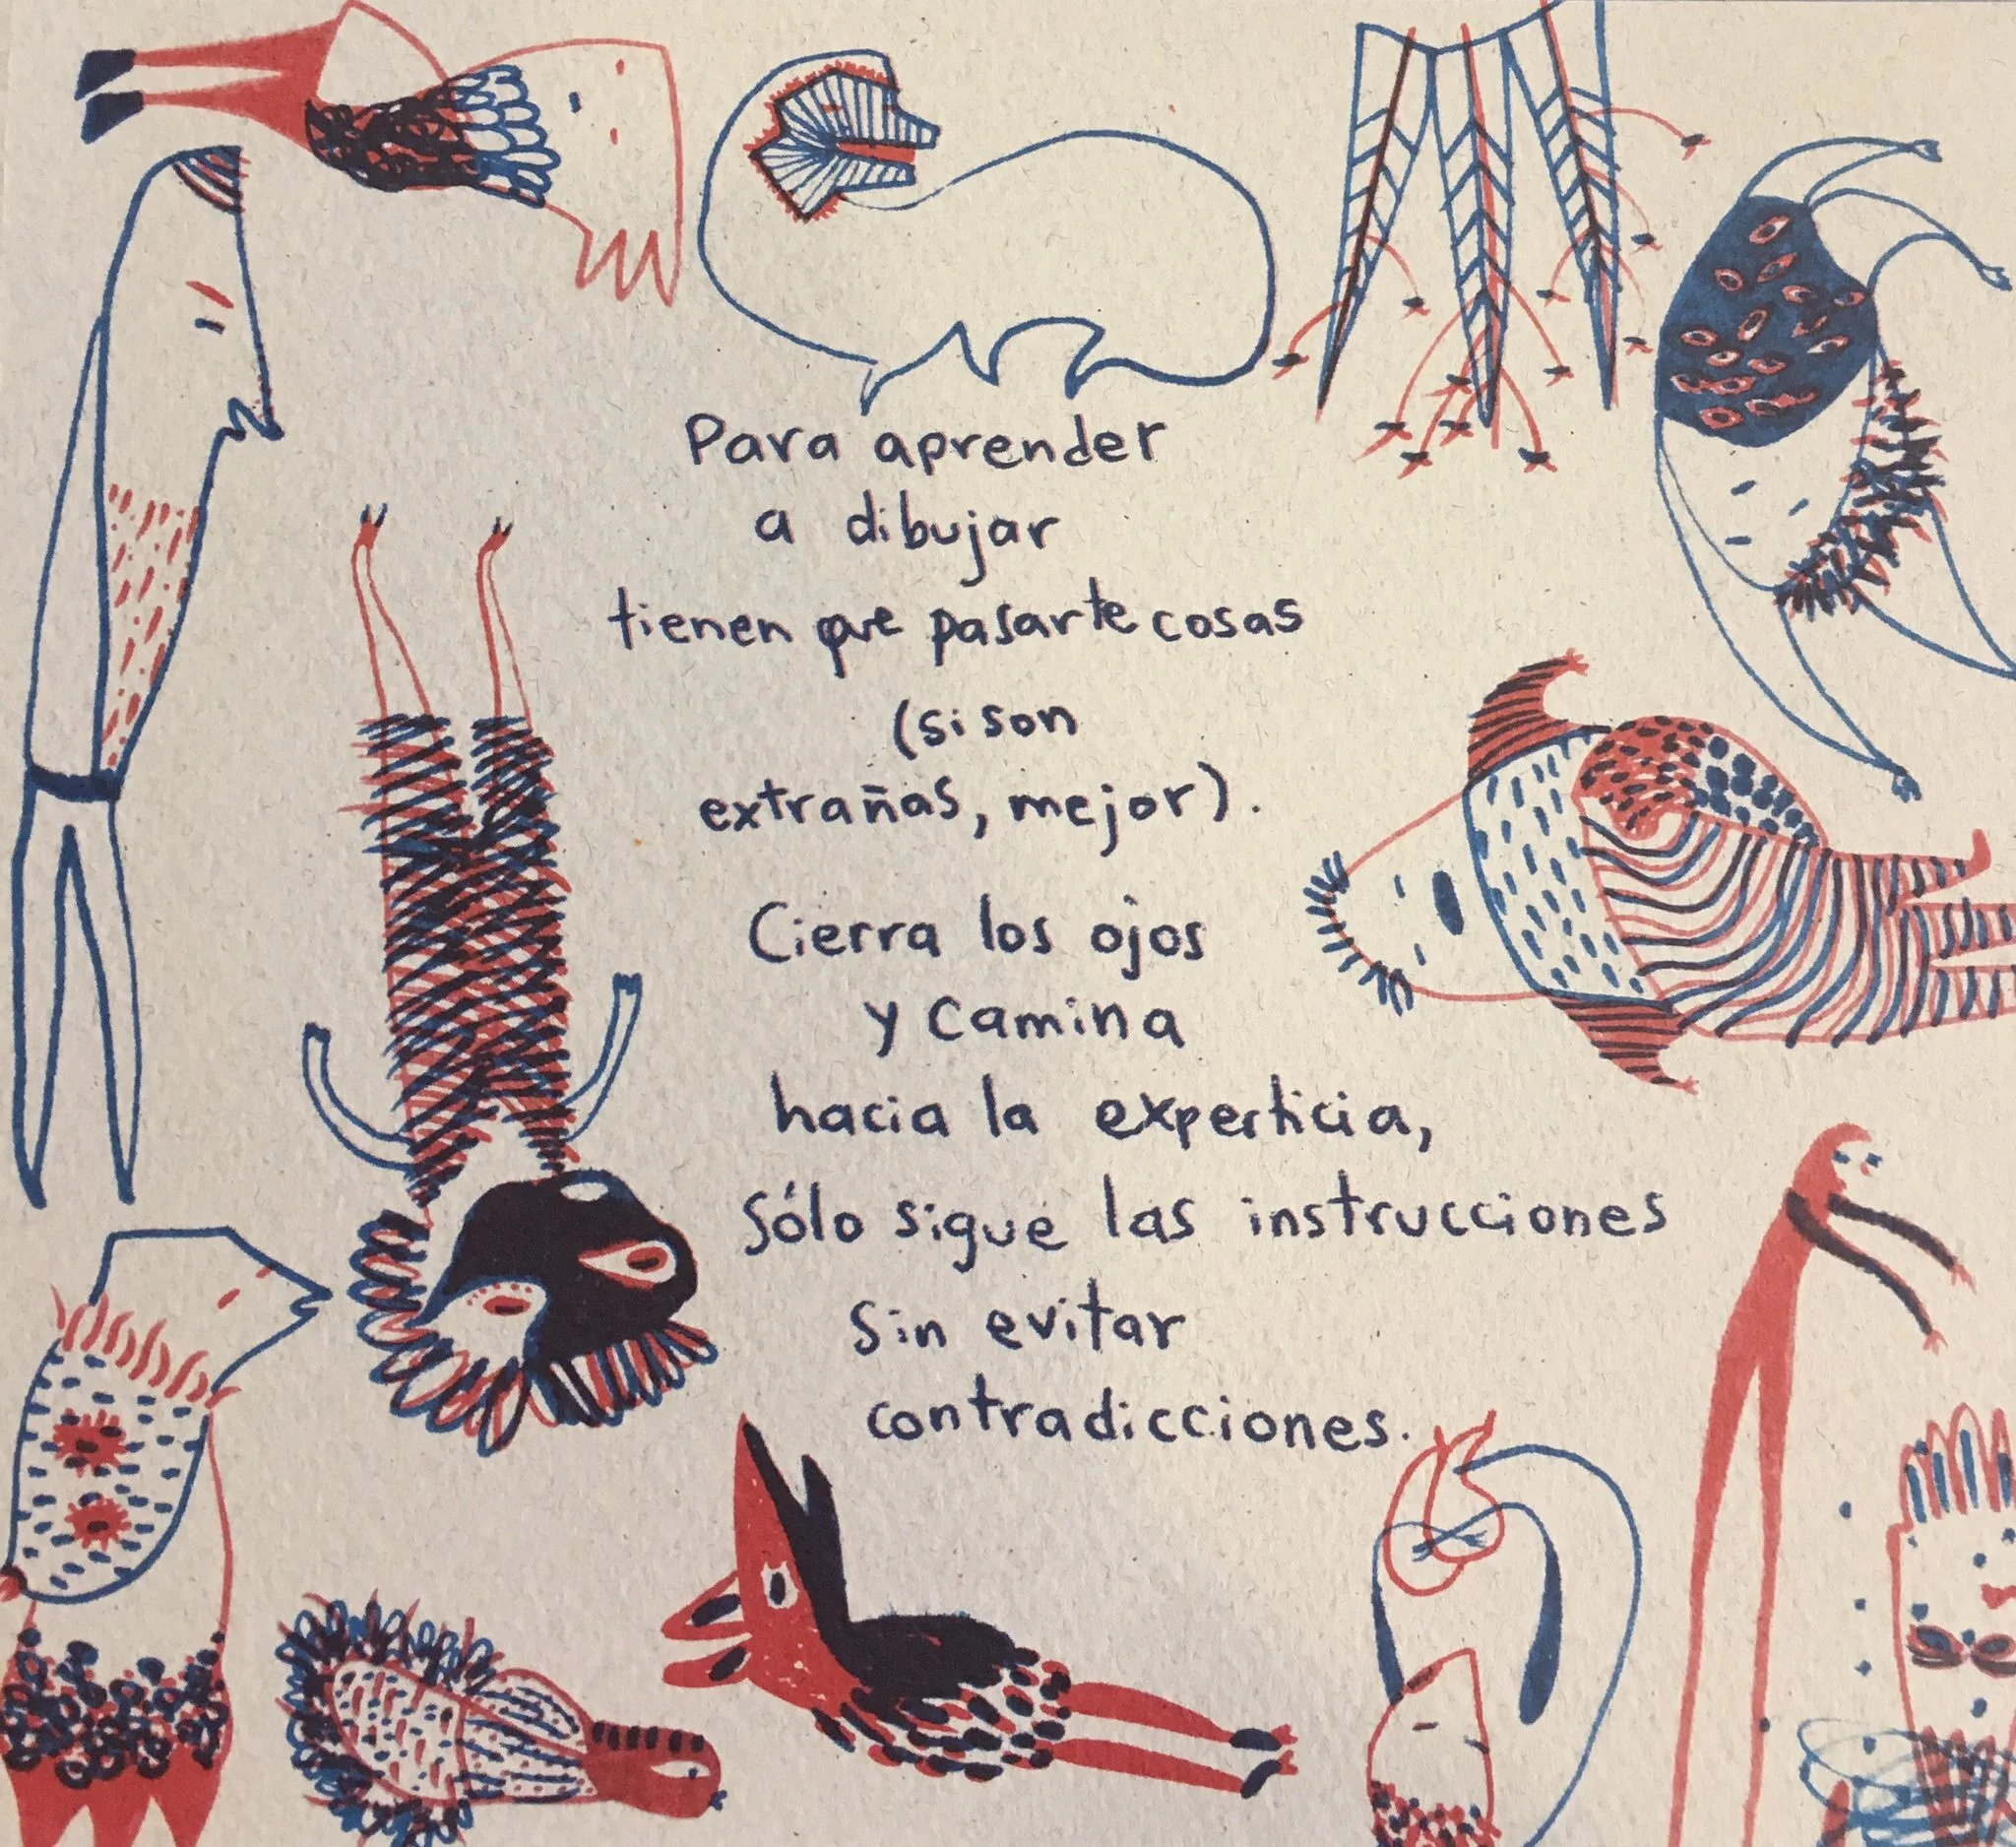 Para aprender
a dibujar
tienen que pasarte cosas
(si son
extrañas, mejor).
Cierra los ojos
y camina
hacia la experticia,
Sólo sigue las instrucciones
sin evitar
contradicciones.